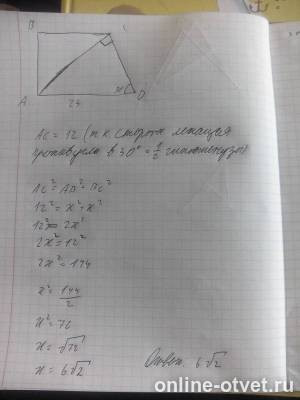 B
C
A
D
24
AC = 12 (т.к. сторона лежащая
напротив в 30° = 1/2 гипотенузы)
AC² = AB² = BC²
12² = x² + x²
12² = 2x²
2x² = 12²
2x² = 174
x² = 144/2
x² = 76
x = √72
x = 6√2
Ответ. 6√2
online-otvet.ru